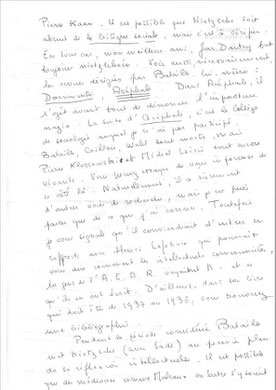 Pierre Kaan. Il est possible que Nietzsche soit
absent de la Critique sociale, mais c'est à vérifier.
En tous cas, mon meilleur ami, Jean Dautry était
toujours nietzschéen. Voir aussi, nécessairement,
les revues dirigées par Bataille lui-même :
Documents, Acéphale. Dans Acéphale, il
s'agit avant tout de dénoncer l'imposture
nazie. La suite d'Acéphale, c'est le Collège
de sociologie auquel je n'ai pas participé.
Bataille, Caillois, Wahl sont morts, mais
Pierre Klossowski et Michel Leiris sont encore
vivants. Vous
à côté là. Naturellement, il y a sûrement
d'autres voies de recherche, mais je ne puis
parler que de ce que j'ai connu. Toutefois
je vous signale qu'il conviendrait d'entrer en
rapports avec Henri Lefebvre qui pourrait
vous dire comment les intellectuels communistes,
les gens de l'A.E.A.R. et
qu'ils en ont écrit. D'ailleurs, dans son livre
qui doit être de 1937 à 1938, vous trouverez
une bibliographie.
Pendant la période considérée Bataille
met Nietzsche (avec Sade) au premier plan
de sa réflexion intellectuelle. Il est possible
que de médiocres comme Malraux ou